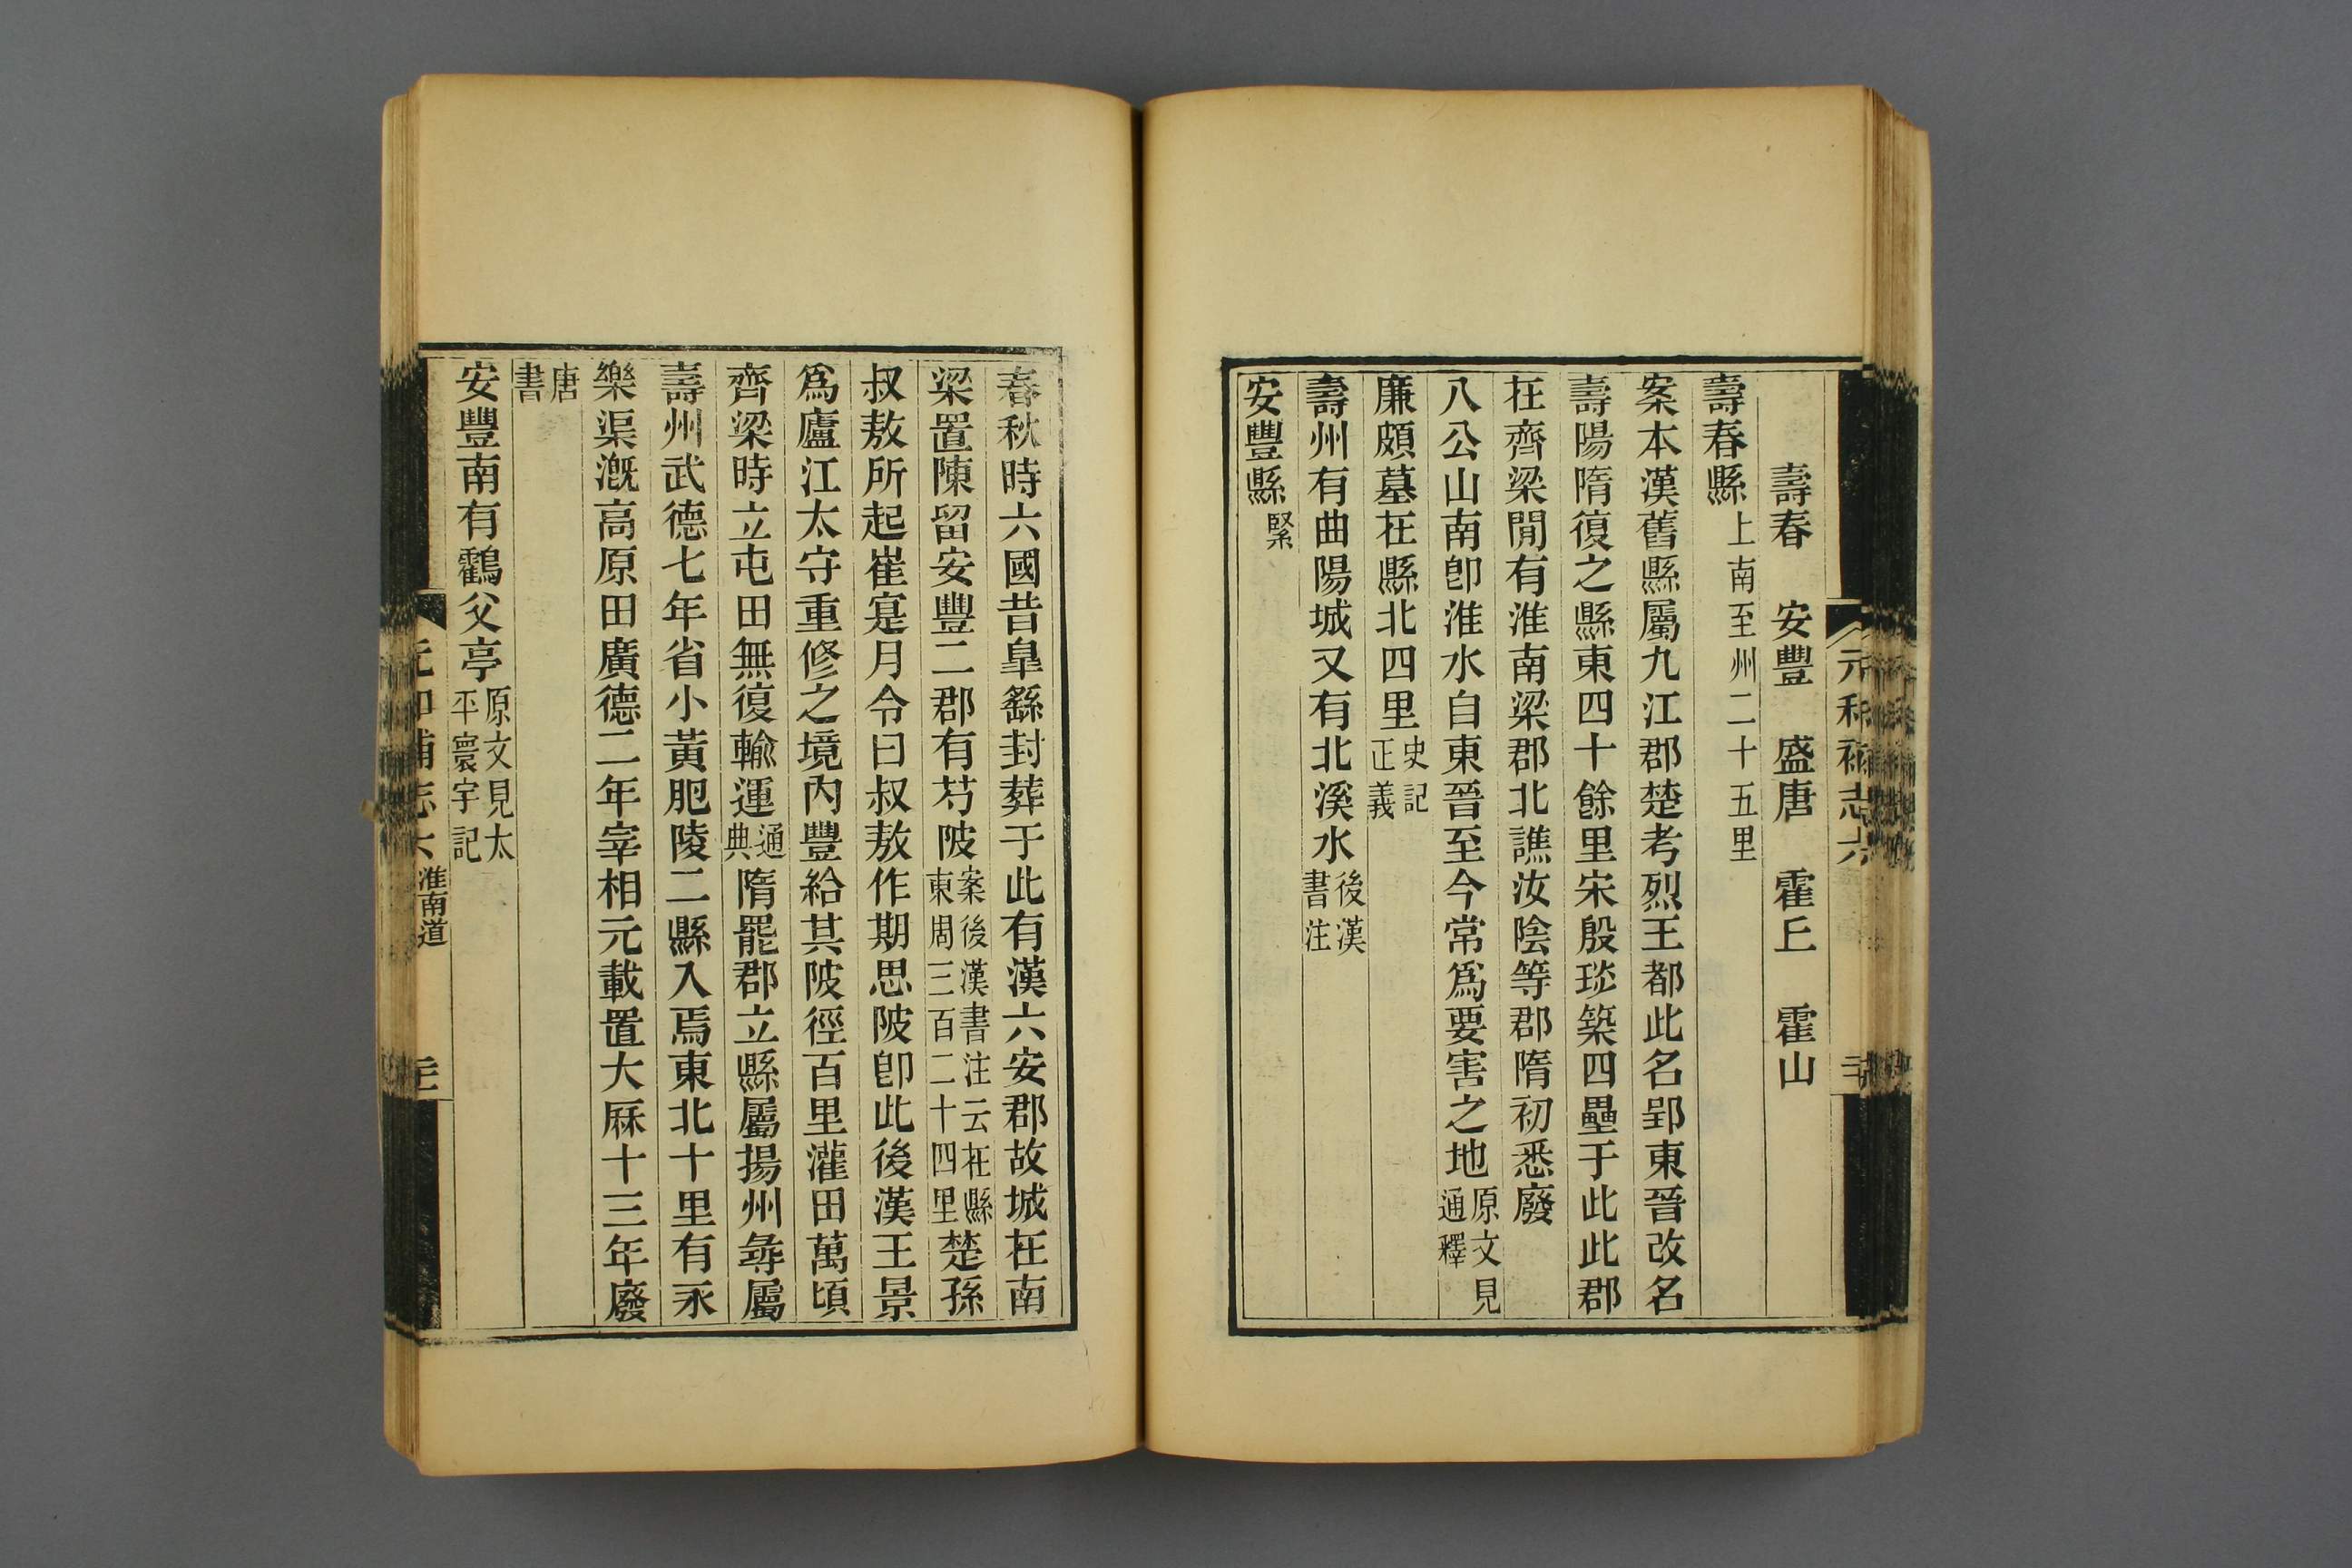 壽春　安豐　盛唐　霍丘　霍山
壽春縣上南至州二十五里
案本漢舊縣屬九江郡楚考烈王都此名郢東晉改名
壽陽隋復之縣東四十餘里宋殷琰築四壘于此此郡
在齊梁閒有淮南梁郡北譙汝陰等郡隋初悉廢
八公山南卽淮水自東晉至今常爲要害之地原文見通釋
廉頗墓在縣北四里史記正義
壽州有曲陽城又有北溪水後漢書注
安豐縣緊
春秋時六國昔臯繇封葬于此有漢六安郡故城在南
梁置陳留安豐二郡有芍陂案後漢書注云在縣東周三百二十四里楚孫
叔敖所起崔寔月令曰叔敖作期思陂卽此後漢王景
爲廬江太守重修之境內豐給其陂徑百里灌田萬頃
齊梁時立屯田無復輸運通典隋罷郡立縣屬揚州尋屬
壽州武德七年省小黃肥陵二縣入焉東北十里有永
樂渠漑高原田廣德二年宰相元載置大厤十三年廢
唐書
安豐南有鸖父亭原文見太平寰宇記
淮南道